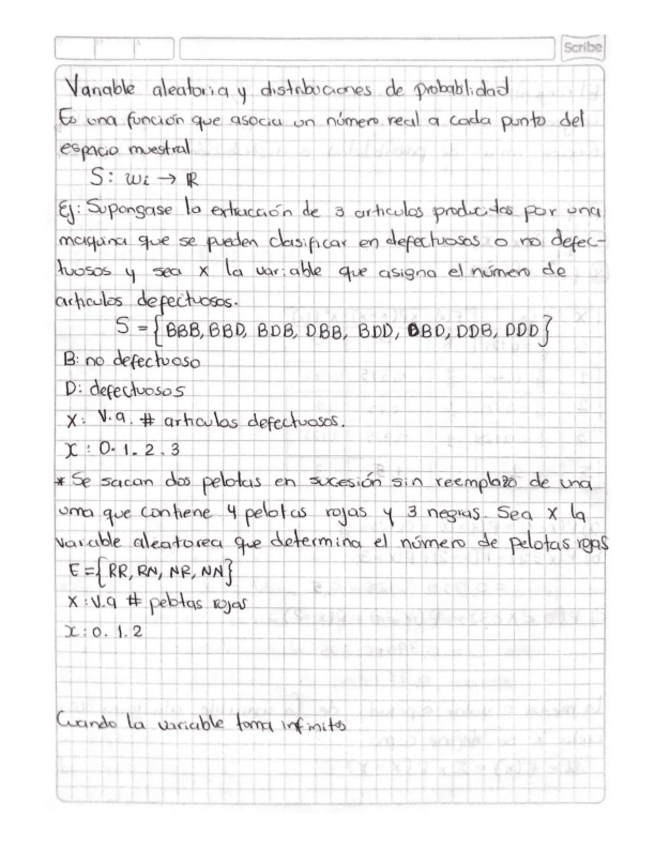 Scribe
Variable aleatoria y distribuciones de probablidad
Es una función que asocia un número real a cada punto del
espacio muestral
S: wi → ℝ
Ej: Supongase la extracción de 3 articulos producidos por una
maquina que se pueden clasificar en defectuosos o no defec-
tuosos y sea x la variable que asigna el número de
articulos defectuosos.
S = {BBB, BBD, BDB, DBB, BDD, DBD, DDB, DDD}
B: no defectuoso
D: defectuosos
x: v.a. # articulos defectuosos.
x : 0. 1. 2. 3
* Se sacan dos pelotas en sucesión sin reemplazo de una
urna que contiene 4 pelotas rojas y 3 negras. Sea x la
variable aleatorea que determina el número de pelotas rojas
E = {RR, RN, NR, NN}
x : v.a # pelotas rojas
x : 0. 1. 2
Cuando la variable toma infinitos